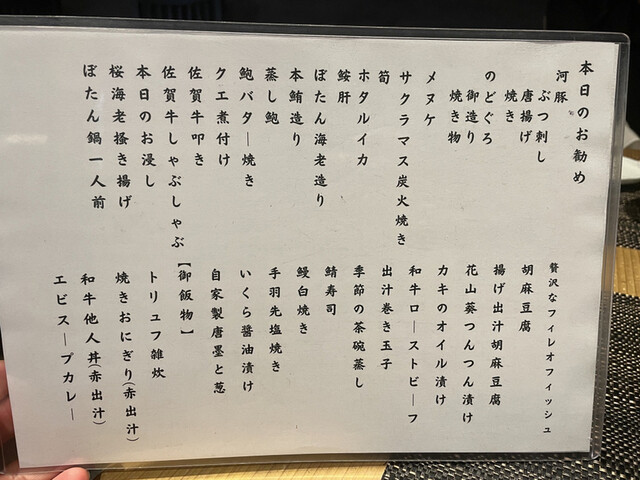 本日のお勧め
河豚
ぶつ刺し
唐揚げ
焼き
のどぐろ
御造り
焼き物
メヌケ
サクラマス炭火焼き
筍
ホタルイカ
鮟肝
ぼたん海老造り
本鮪造り
蒸し鮑
鮑バター焼き
クエ煮付け
佐賀牛叩き
佐賀牛しゃぶしゃぶ
本日のお浸し
桜海老掻き揚げ
ぼたん鍋一人前
贅沢なフィレオフィッシュ
胡麻豆腐
揚げ出汁胡麻豆腐
花山葵つんつん漬け
カキのオイル漬け
和牛ローストビーフ
出汁巻き玉子
季節の茶碗蒸し
鯖寿司
鰻白焼き
手羽先塩焼き
いくら醤油漬け
自家製唐墨と葱
【御飯物】
トリュフ雑炊
焼きおにぎり(赤出汁)
和牛他人丼(赤出汁)
エビスープカレー